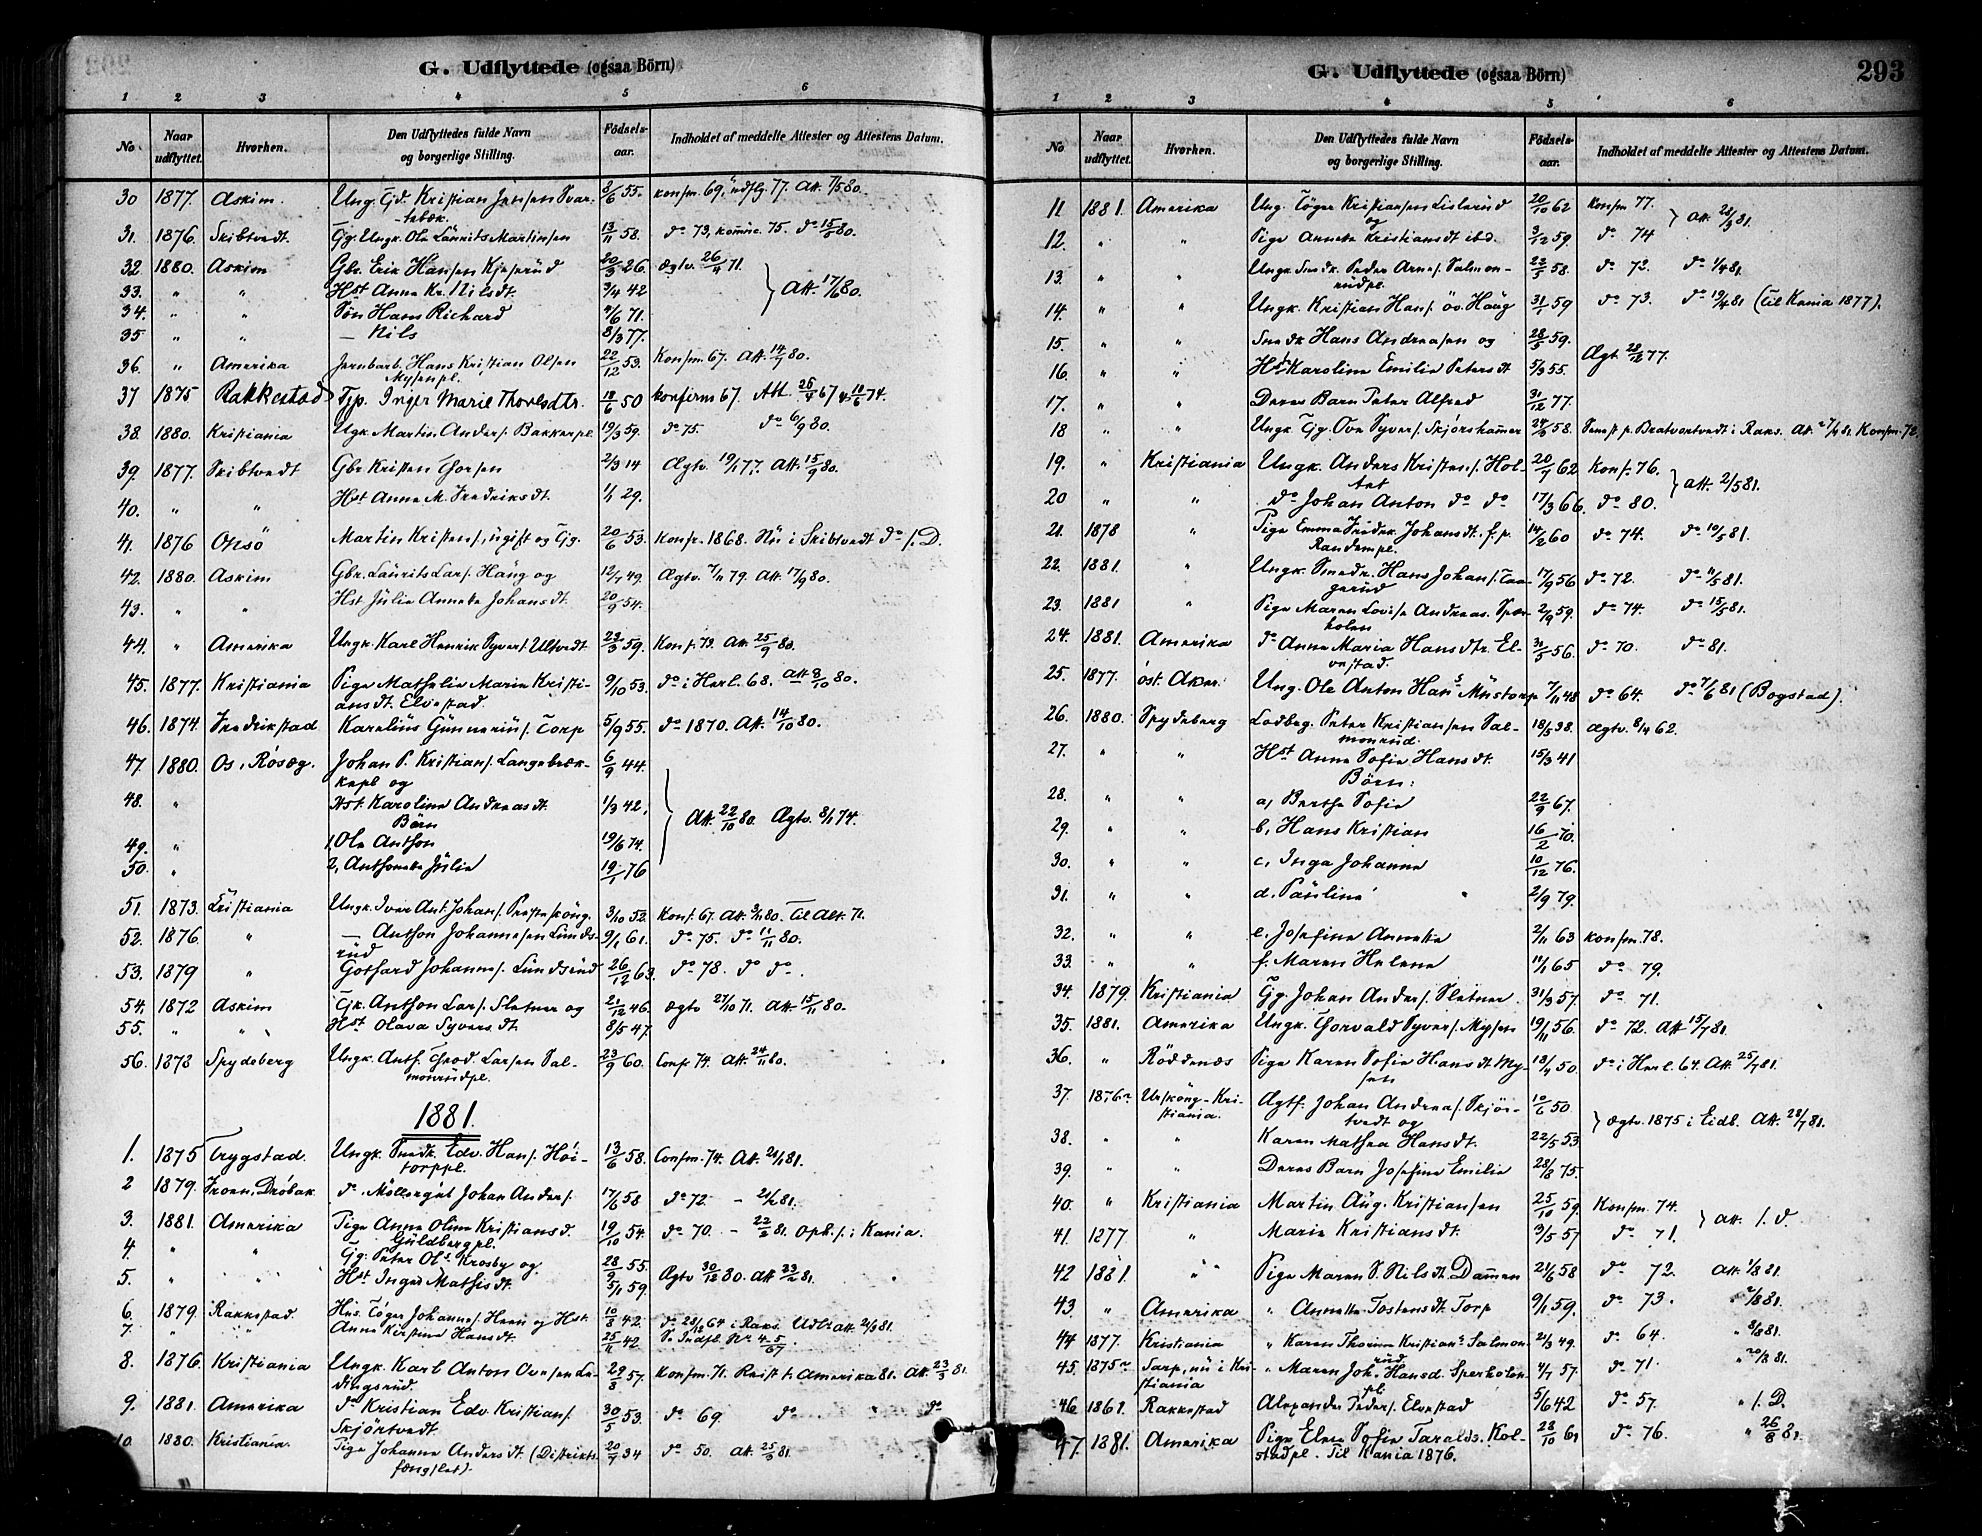 G. Udflyttede (ogsaa Börn)
1 2 3 4 5 6
No Naar udflyttet. Hvorhen. Den Udflyttedes fulde Navn og borgerlige Stilling. Fødsels-aar. Indholdet af meddelte Attester og Attestens Datum.
30 1877. Askim. Ung. Gd. Kristian Jensen Svar- 8/6 55. konfm. 69, udflg. 77. Att. 7/5 80.
-tebæk.
31. 1876. Skibtvedt. Gg. Ungk. Ole Laurits Martinsen 13/11 58. do 73, komme. 75. do 15/5 80.
32. 1880. Askim Gbr. Erik Hansen Kjeserud 20/3 26. ægtv. 26/4 71.
33. " " Hst Anne Kr. Nilsdt. 3/4 42 Att. 17/6 80.
34. " " Søn Hans Richard 4/6 71.
35 " " — Nils 8/3 77.
36. " Amerika Jernbarb. Hans Kristian Olsen 22/12 53. Konfm. 67. Att. 14/7 80.
Mysenpl.
37 1875 Rakkestad Tjp. Inger Marie Thorvlsdtr. 18/6 50 konfirm 67. Att. 26/4 67 18/6 74.
38. 1880. Kristiania Ugk. Martin Anders. Bakkerpl. 19/3 59. do 75. do 6/9 80.
39. 1877. Skibtvedt Gbr. Kristen Torsen 2/3 14 Ægtv. 19/1 77. Att. 15/9 80.
40. " " Hst Anne M. Fredriksdt. 1/1 29.
41. 1876 Onsö Martin Kristens., ugift og Gg. 20/6 53. Konfr. 1868. Nu i Skibtvedt do s. D.
42. 1880. Askim Gbr. Laurits Lars. Haug og 12/7 49. Ægtv. 7/11 79. Att. 17/9 80.
43. " " Hst Julie Annette Johansdt. 20/9 54.
44. " Amerika Ungk. Karl Henrik Syvers. Ultvedt 23/3 59. Konf. 73. Att. 25/9 80.
45. 1877. Kristiania Pige Mathilie Marie Kristi- 9/10 53. do i Herl. 68. Att. 8/10 80.
ansdt. Elvestad.
46. 1874. Fredrikstad Karelius Gunnerius. Torp 5/9 55. do 1870. Att. 14/10 80.
47. 1880. Os, Rösæg. Johan P. Kristians. Langebæk- 6/9 44.
kepl og
48. " Hst. Karoline Andreasdt. 1/3 42. Att. 22/10 80. Ægtv. 8/1 74.
Börn
49. " 1, Ole Anthon 19/6 74.
50. " 2, Anthonette Julie 19/1 76
51. 1873. Kristiania Ungk. Iver Ant. Johans. 3/10 52. Konf. 67. Att. 3/11 80. Til Alt. 71.
52. 1876. " — Anthon Johannesen Lunds- 9/1 61. do 75. do 11/11 80.
rud
53. 1879 " Gothard Johannes. Lundsrud 26/12 63. do 78. do do.
54. 1872 Askim Gk. Anthon Lars. Sletner og 21/12 46. ægtv 27/10 71. Att. 15/11 80.
55. " " Hst. Olava Syversdt. 8/5 47.
56. 1878 Spydeberg Ungk. Anth. Theod. Larsen Sal- 23/9 60. Conf. 74. Att. 24/11 80.
monrudpl.
1881.
1. 1875 Trygstad. Ungk. Snedk. Edv. Hans. Höi- 13/6 58. Confm. 74. Att. 21/1 81.
torppl.
2 1879. Froen, Dröbak do Möllergut Johan Anders. 17/6 58 do 72 – 21/2 81.
3. 1881. Amerika Pige Anne Oline Kristiansd. 19/10 54. do 70. – 22/2 81. Oph. s. i Kania.
Guldbergpl.
4. " " Gg. Peter Ols. Krosby og 28/9 55.
5. " " Hst. Inger Mathisdt. 5/1 59. Ægtv 30/12 80. Att 23/2 81.
6. 1879. Rakkestad. Hus. Töger Johannes. Heen og Hst 10/8 42. do 28/12 64 i Raks. Udtr. att. 2/3 81.
7. " " Anne Kirstine Hansdt. 25/11 42 S. Indfl. No 4-5/67
8. 1876. Kristiania Ungk. Karl Anton Ovesen Lu- 29/8 57. Konfm. 71. Reist t. Amerika 81. Att. 23/3 81.
dingsrud.
9. 1881. Amerika do Kristian Edv. Kristians. 30/5 53. do 69. do do
Skjörtvedt.
10. 1880. Kristiania. Pige Johanne Andersdt. (Distrikts- 20/7 34 do 50. Att. 25/3 81.
fængslet).
G. Udflyttede (ogsaa Börn) 293
1 2 3 4 5 6
No Naar udflyttet. Hvorhen. Den Udflyttedes fulde Navn og borgerlige Stilling. Fødsels-aar. Indholdet af meddelte Attester og Attestens Datum.
11 1881. Amerika Ung. Töger Kristiansen Lislerud 20/10 62 Konfm 77.
og Att. 28/3 81.
12. " " Pige Annette Kristiansdt ibd. 3/12 59. do 74
13. " " Ungk Snedk. Peder Arnes. Salmon- 22/5 58. do 72. do 1/4 81.
rudpl.
14. " " Ungk. Kristian Hans. öv. Haug 31/1 59 do 73. do 19/4 81 (Til Kania 1877).
15. " " Snedk Hans Andreasen og 28/5 59.
16. " " Hst Karoline Emilie Petersdt 5/3 55. Ægt. 28/12 77.
17. " " Deres Barn Peter Alfred 31/12 77.
18 " " Ungk Gg. Ove Syvers. Skjörshamer 24/6 58. Tenest p. Bratvortvedt i Raks. Att. 27/4 81. Konfm. 72.
19. " Kristiania Ungk. Anders Kristens. Hol- 20/7 62 Konf. 76.
tet Att. 2/5 81.
20 " " do Johan Anton do do 17/3 66. do 80.
21. 1878 " Pige Emma Fredrk. Johansdt. f. p. 14/2 60 do 74. do 10/5 81.
Randempl.
22. 1881. " Ungk. Smedk. Hans Johans. Taa- 17/9 56 do 72. do 11/5 81.
gerud
23. 1881 " Pige Maren Lovise Andreas. Sper- 2/9 59. do 74. do 15/5 81.
holen
24. 1881. Amerika do Anne Maria Hansdtr. El- 31/5 56. do 70. do 81.
vestad.
25. 1877. Öst. Aker. Ung. Ole Anton Hans Mustorp 7/11 48 do 64. do 7/6 81 (Bogstad).
26. 1880. Spydeberg Lodbeg. Peter Kristiansen Sal- 18/5 38. Ægtv. 8/14 62.
monrud.
27. " " Hst Anne Sofie Hansdt. 15/3 41
Börn:
28. " " a, Berthe Sofie 22/9 67.
29. " " b, Hans Kristian 16/2 70.
30. " " c, Inga Johanne 10/12 76.
31. " " d. Pauline 2/9 79.
32. " " e. Josefine Annette 2/11 63 Konfm. 78.
33. " " f. Maren Helene 11/1 65 do 79.
34. 1879. Kristiania Gg. Johan Anders. Sletner. 31/3 57. do 71.
35. 1881. Amerika Ungk. Thorvald Syvers. Mysen 19/11 56. do 72. Att 15/7 81.
36. " Röddenæs Pige Karen Sofie Hansdt My- 18/4 50. do i Herl. 64. Att. 25/7 81.
sen
37. 1876 Urskoug-Kri- Ægtf. Johan Andreas. Skjör- 10/6 50.
stiania. tvedt og ægtv. 1875 i Eidb. Att. 28/7 81.
38. " " Karen Mathea Hansdt. 22/5 53
39. " " Deres Barn Josefine Emilie 28/8 75.
40. " Kristiania Martin Aug. Kristiansen 25/10 59. Konfm. 74.
Att. s. d.
41. 1877 " Marie Kristiansdt. 3/5 57 do 71.
42 1881. " Pige Maren S. Nilsdt. Dammen 21/6 58 do 72. Att. 1/8 81.
43. " Amerika " Annette Tostensdt. Torp 9/1 59. do 73. " 2/8 81.
44 1877. Kristiania " Karen Thorine Kristians Salmon- 21/3 49. do 64. " 8/8 81.
rud
45. 1875 Sarp, nu i Kri- " Maren Joh. Hansd. Sperholen 4/7 57. do 71. " 20/8 81.
stiania pl.
46 1861. Rakkestad Alexander Peders. Elvestad 5/6 42 do 57. " s. D.
47. 1881. Amerika Pige Elise Sofie Taralds. Kol- 28/10 61 do 76. " 26/8 81.
stadpl. Til Kania 1876.